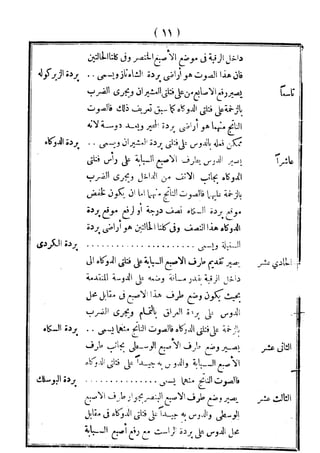 ( ١١ )
داخل الرقبة فى موضع الأصبع الخنصر وفى كلتا الحالتين
فان هذا الصوت هو أراضى بردة الشاه ناز ويسمى .. بردة الزيركوله
تاسعاً يصير رفع الاصابع من على فتلتى المشيران ويجرى الضرب
بالزخمة على فتلتى الدوكاه كما سبق تعريف ذلك فالصوت
الناتج منهما هو أراضى بردة الحير ويسد دوسة لانه
ممكن فعله بالدوس على فتلتى بردة المشيران ويسمى .. بردة الدوكاه
عاشراً يصير الدوس بطرف الاصبع السبابة على رأس فتلتى
الدوكاه بجانب الانف من الداخل ويجرى الضرب
بالزخمة عليهما فالصوت الناتج منهما اما ان يكون لخفض
موقع بردة السكاه نصف درجة أو لرفع موقع بردة
الدوكاه هذا النصف وفى كلتا الحالتين هو أراضى بردة
السنبلة ويسمى .................... بردة الكردى
الحادى عشر يصير تقديم طرف الاصبع السبابة على فتلتى الدوكاه الى
داخل الرقبة بقدر مسافة وضعه على الدوسة المتقدمة
بحيث يكون وضع طرف هذا الاصبع فى مقابل محل
الدوس على بردة العراق بالتمام ويجرى الضرب
بالزخمة على فتلتى الدوكاه فالصوت الناتج منهما يسمى .. بردة السكاه
الثانى عشر يصير وضع طرف الاصبع الوسطى بجانب طرف
الأصبع السبابة والدوس به جيداً على فتلتى الدوكاه
فالصوت الناتج منهما يسمى ............. بردة البوسلك
الثالث عشر يصير وضع طرف الاصبع البنصر بجوار طرف الاصبع
الوسطى والدوس به جيداً على فتلتى الدوكاه فى مقابل
محل الدوس على بردة الراست مع رفع أصبع السبابة